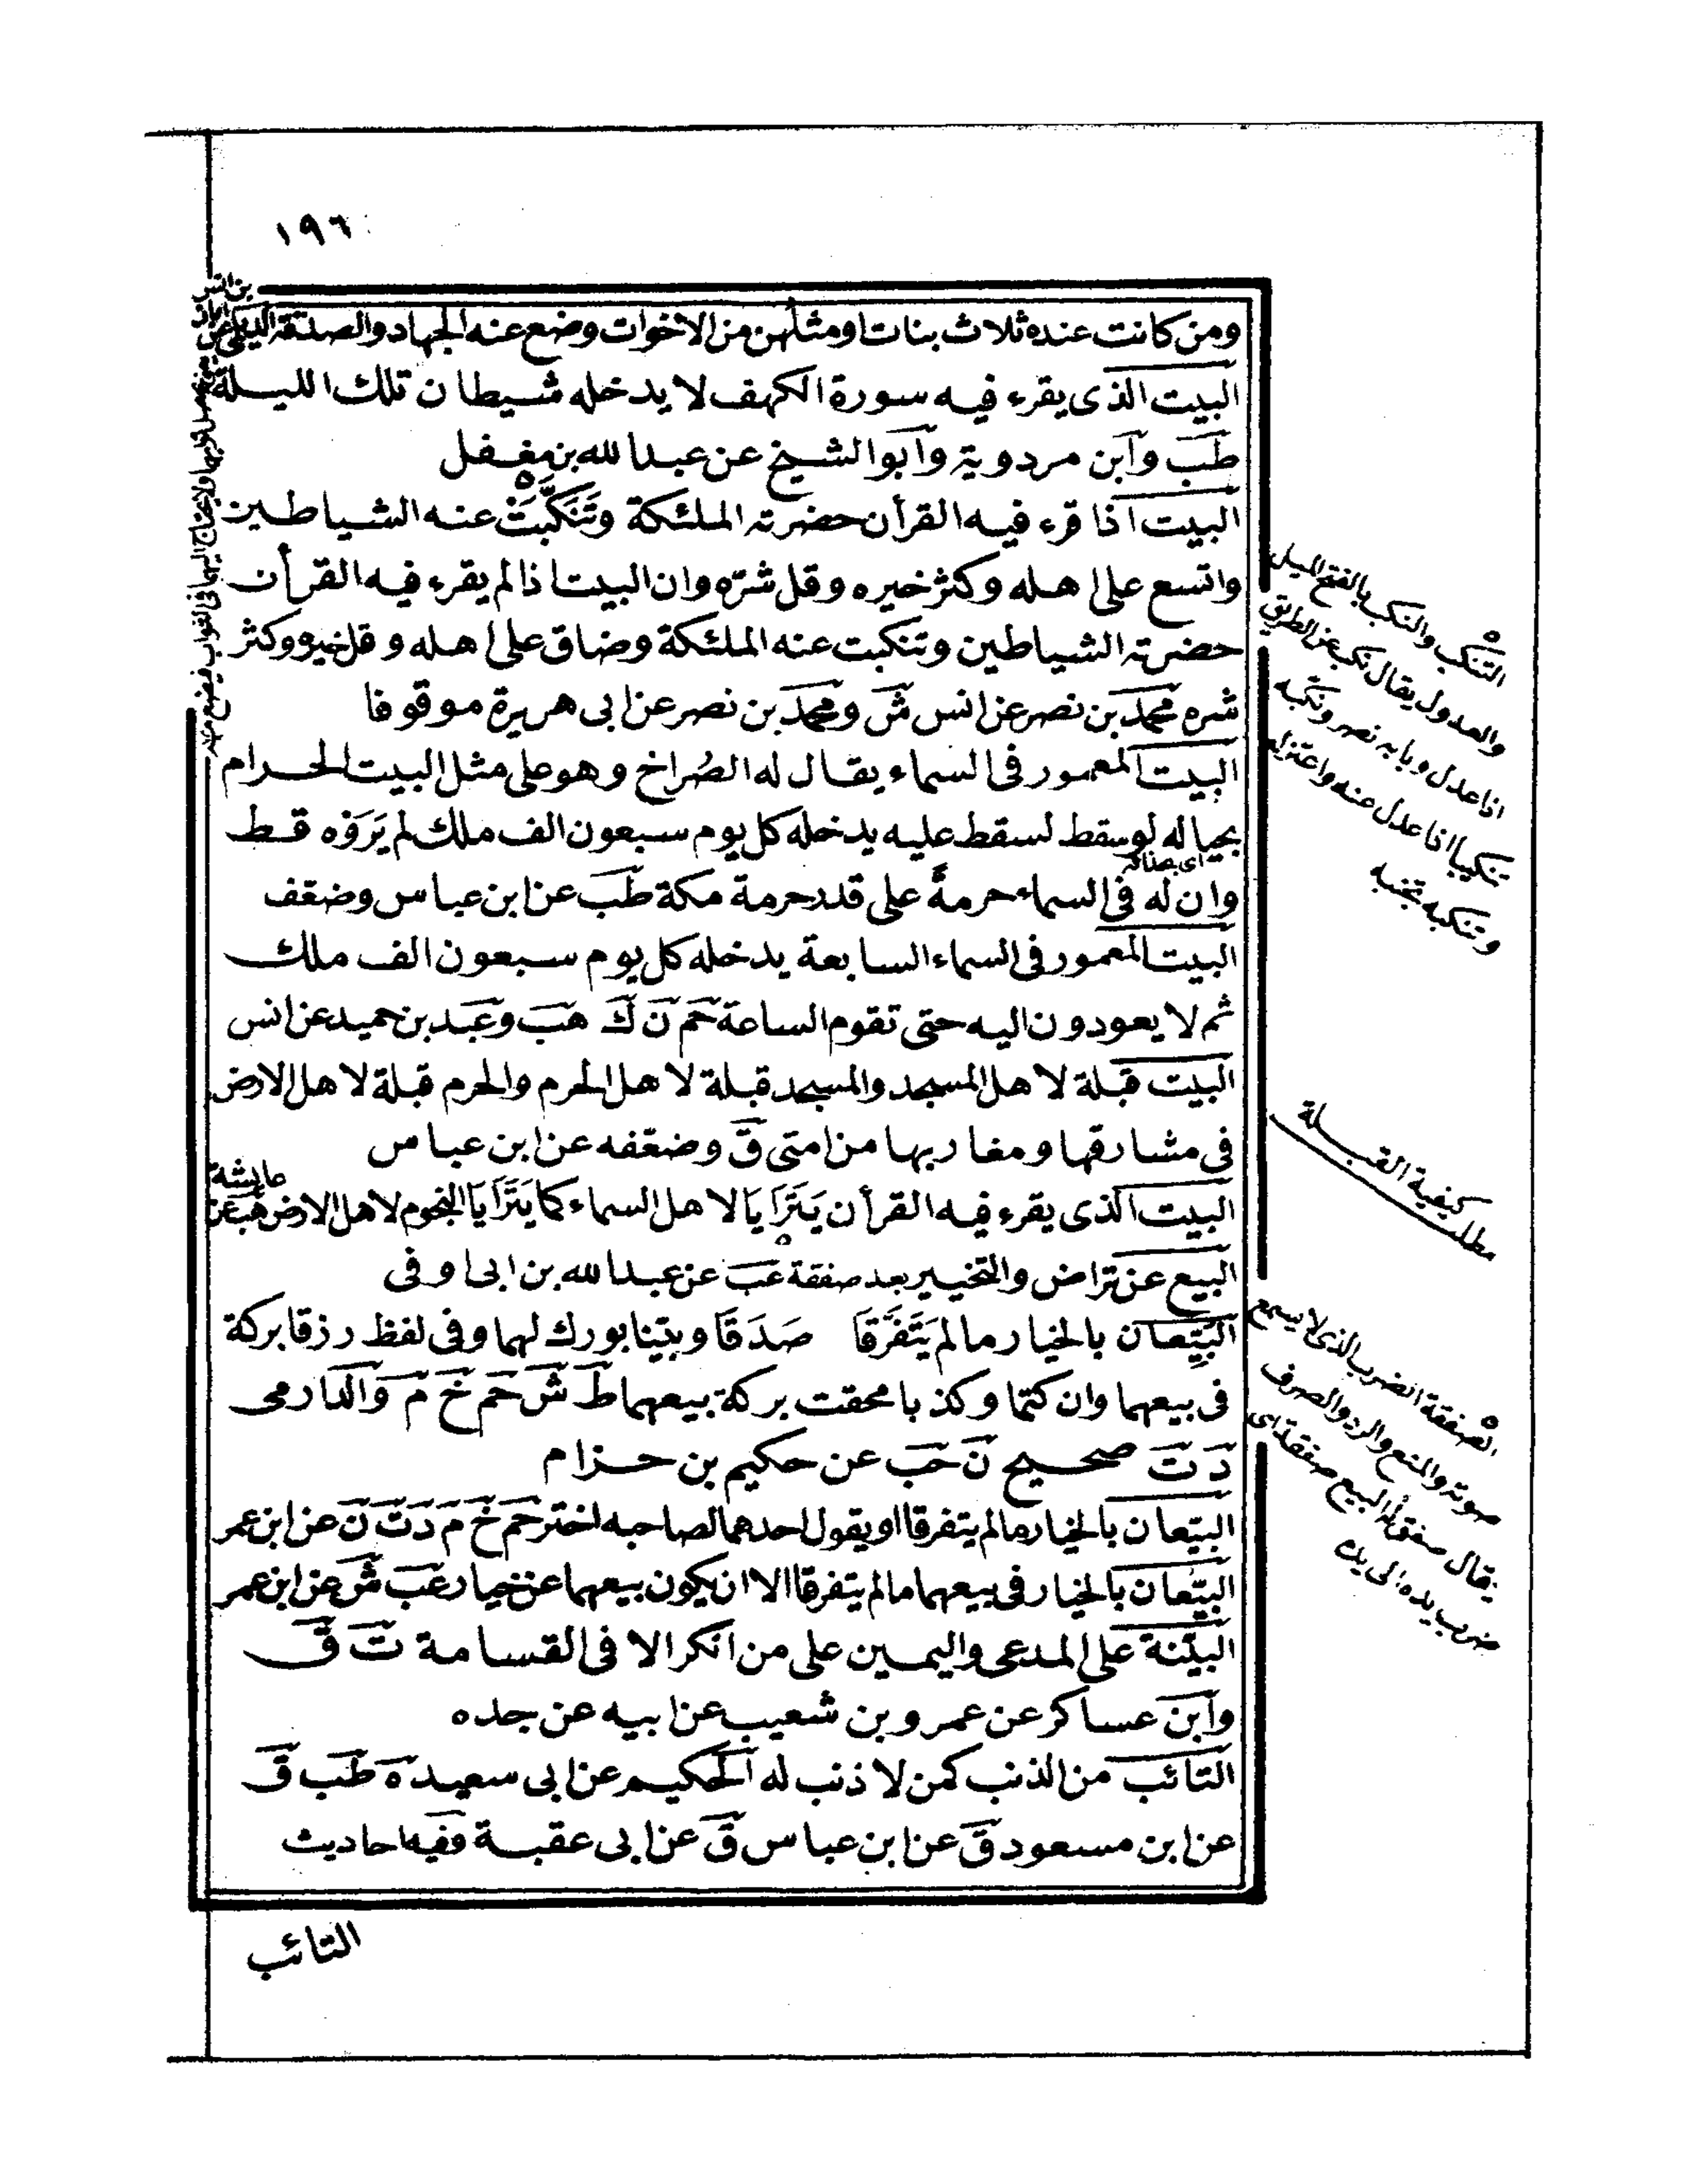 ١٩٦
ومن كانت عنده ثلاث بنات او مثلهن من الاخوات وضع عنه الجهاد والصدقة الديلمى عن
البيت الذى يقرء فيه سورة الكهف لا يدخله شيطان تلك الليلة
طب وابن مردوية وابو الشيخ عن عبد الله بن مغفل
البيت اذا قرء فيه القرأن حضرته الملئكة وتَنَكَّبَتْ عنه الشياطين
واتسع على اهله وكثر خيره وقل شرّه وان البيت اذا لم يقرء فيه القرأن
حضرته الشياطين وتنكبت عنه الملئكة وضاق على اهله وقل خيره وكثر
شره محمد بن نصر عن انس ش ومحمد بن نصر عن ابى هريرة موقوفا
البيت المعمور فى السماء يقال له الصُراخ وهو على مثل البيت الحرام
بحياله لو سقط لسقط عليه يدخله كل يوم سبعون الف ملك لم يَرَوْه قط
وان له فى السماء حرمةً على قدر حرمة مكة طب عن ابن عباس وضعّف
البيت المعمور فى السماء السابعة يدخله كل يوم سبعون الف ملك
ثم لا يعودون اليه حتى تقوم الساعة حم ن ك هب وعبد بن حميد عن انس
البيت قبلة لاهل المسجد والمسجد قبلة لاهل الحرم والحرم قبلة لاهل الارض
فى مشارقها ومغاربها من امتى ق وضعّفه عن ابن عباس
البيت الذى يقرء فيه القرأن يَتَرَايَا لاهل السماء كما يَتَرَايَا النجوم لاهل الارض هب عن
عايشة
البيع عن تراض والتخيير بعد صفقة عب عن عبد الله بن ابى اوفى
البَيِّعان بالخيار ما لم يَتَفَرَّقَا صَدَقَا وبيّنا بورك لهما وفى لفظ رزقا بركة
فى بيعهما وان كتما وكذبا محقت بركة بيعهما ط ش حم خ م والدارمى
د ت صحيح ن حب عن حكيم بن حزام
البيّعان بالخيار ما لم يتفرقا او يقول احدهما لصاحبه اختر حم خ م د ت ن عن ابن عمر
البيّعان بالخيار فى بيعهما ما لم يتفرقا الا ان يكون بيعهما عن خيار عب ش عن ابن عمر
البيّنة على المدعى واليمين على من انكر الا فى القسامة ت ق
وابن عساكر عن عمرو بن شعيب عن ابيه عن جده
التائب من الذنب كمن لا ذنب له الحكيم عن ابى سعيد ه طب ق
عن ابن مسعود ق عن ابن عباس ق عن ابى عقبة وفيه احاديث
التائب
التنكب والنكب بالفتح الميل
والعدول يقال نكب عن الطريق
اذا عدل وبابه نصر ونكبه
تنكيبا اذا عدل عنه واعتزله
وتنكبه تجنبه
مطلب كيفية القبلة
الصفقة الضرب الذى لا يسمع
صوته والمنع والرد والصرف
يقال صفق له البيع صفقة اى
ضرب يده الى يده